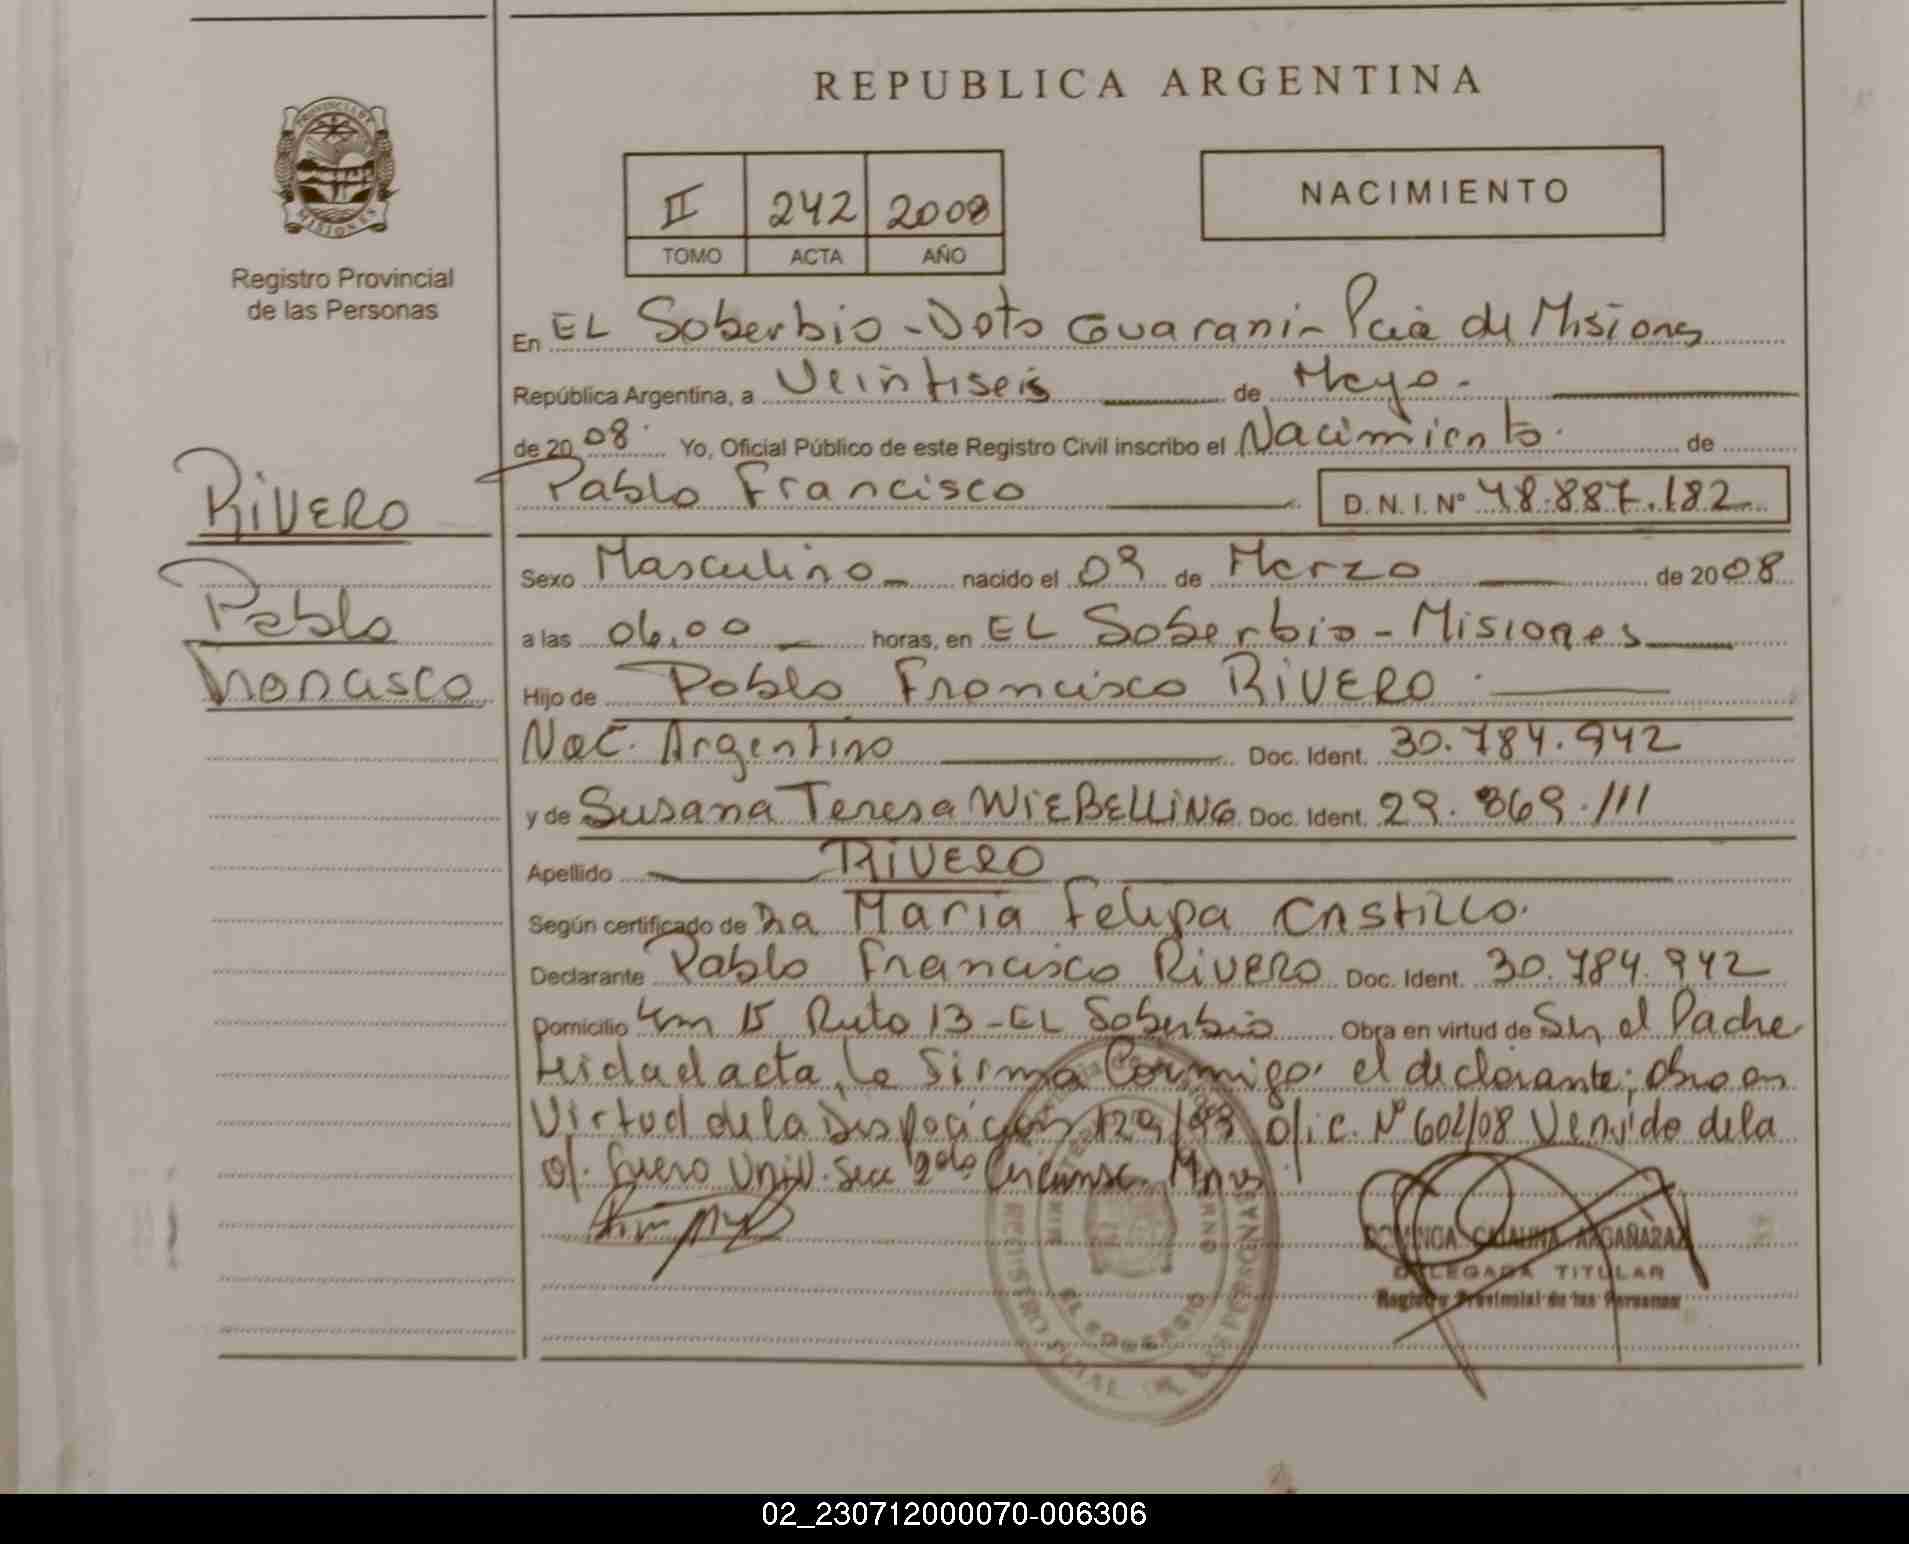 REPUBLICA ARGENTINA
PROVINCIA DE
MISIONES
Registro Provincial
de las Personas
II 242 2008
TOMO ACTA AÑO
NACIMIENTO
En EL Soberbio - Dpto Guarani - Pcia de Misiones
República Argentina, a Veintiseis de Mayo.
de 2008. Yo, Oficial Público de este Registro Civil inscribo el Nacimiento. de
Pablo Francisco D. N. I. N° 48.887.182
RIVERO
Pablo
Francisco
Sexo Masculino nacido el 09 de Marzo de 2008
a las 06,00 horas, en EL Soberbio - Misiones
Hijo de Pablo Francisco RIVERO
Nac. Argentino Doc. Ident. 30.784.942
y de Susana Teresa WIEBELLING Doc. Ident. 29.869.111
Apellido RIVERO
Según certificado de Dra María Felipa CASTILLO.
Declarante Pablo Francisco RIVERO Doc. Ident. 30.784.942
Domicilio Km 15 Ruta 13 - EL Soberbio Obra en virtud de Ser el Padre
Leida el acta, la firma Conmigo el declarante; Obro en
Virtud de la Disposición 129/93 Ofic. N° 602/08 Venido de la
of. Fuero Univ. Sec 2da Circunsc. Mnes
DOMINGA CATALINA ARGAÑARAZ
DELEGADA TITULAR
Registro Provincial de las Personas
EL SOBERBIO
02_230712000070-006306